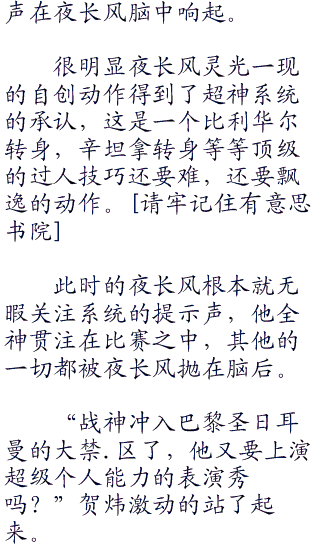 声在夜长风脑中响起。
很明显夜长风灵光一现
的自创动作得到了超神系统
的承认，这是一个比利华尔
转身，辛坦拿转身等等顶级
的过人技巧还要难，还要飘
逸的动作。[请牢记住有意思
书院]
此时的夜长风根本就无
暇关注系统的提示声，他全
神贯注在比赛之中，其他的
一切都被夜长风抛在脑后。
“战神冲入巴黎圣日耳
曼的大禁.区了，他又要上演
超级个人能力的表演秀
吗？”贺炜激动的站了起
来。